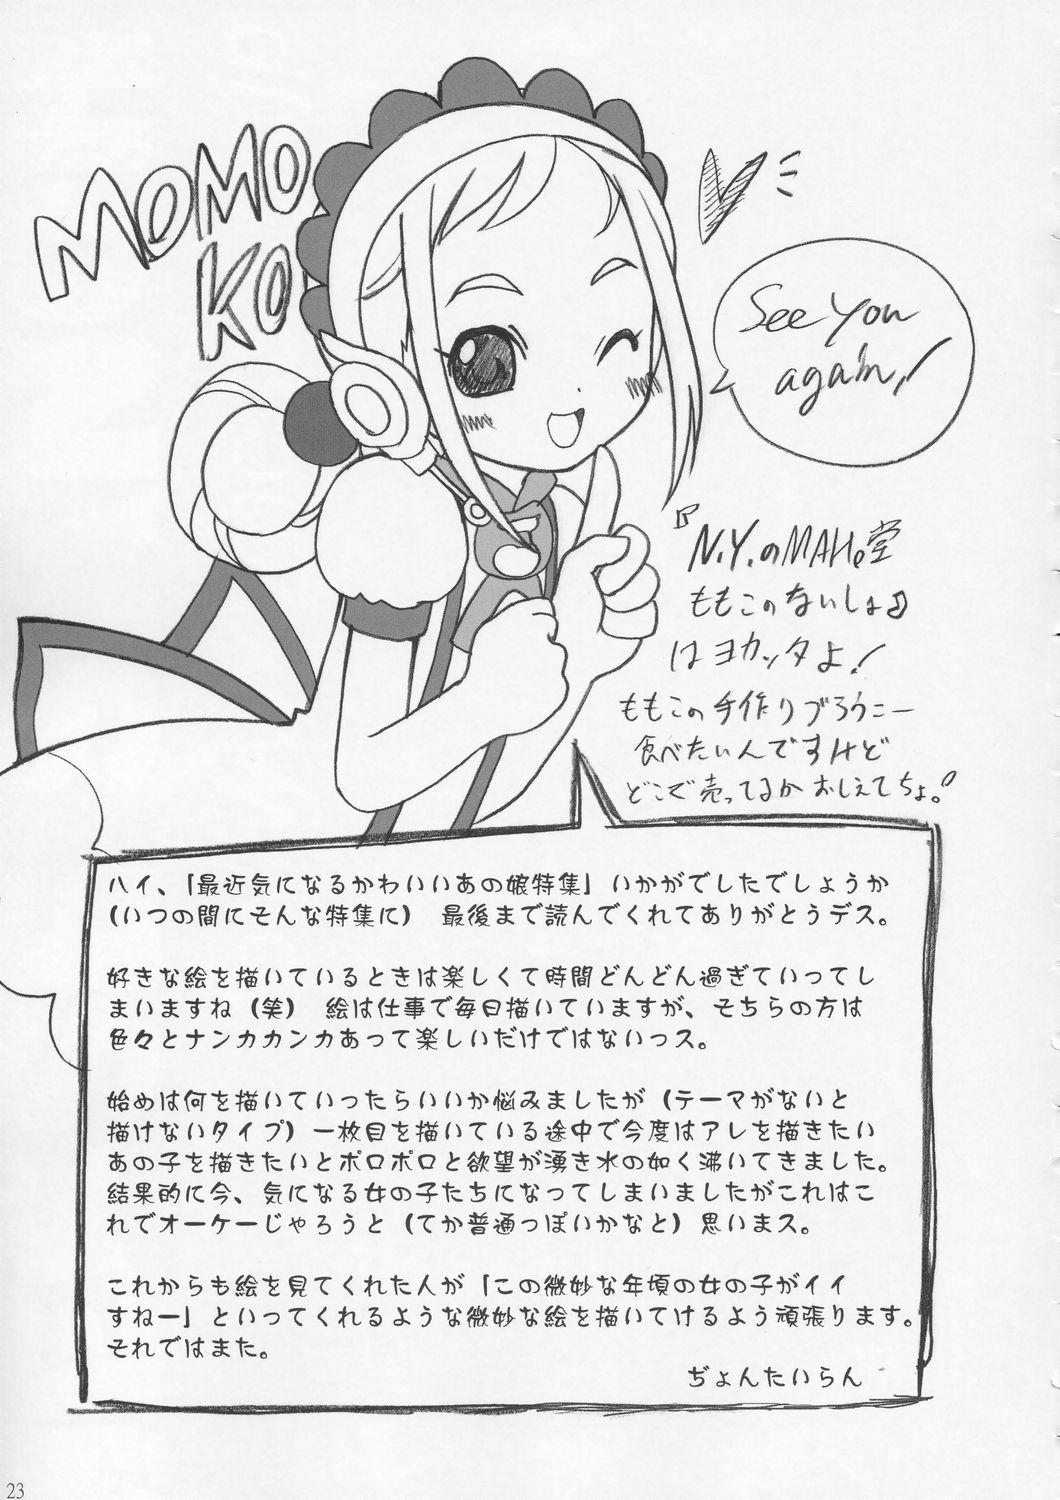 MOMO
KO
See you
again!
『N.Y.のMAHO堂
ももこのないしょ』
はヨカッタよ!
ももこの手作りブろうニー
食べたいんですけど
どこで売ってるかおしえてちょ。
ハイ、「最近気になるかわいいあの娘特集」いかがでしたでしょうか
(いつの間にそんな特集に) 最後まで読んでくれてありがとうデス。
好きな絵を描いているときは楽しくて時間どんどん過ぎていってし
まいますね(笑) 絵は仕事で毎日描いていますが、そちらの方は
色々とナンカカンカあって楽しいだけではないっス。
始めは何を描いていったらいいか悩みましたが(テーマがないと
描けないタイプ)一枚目を描いている途中で今度はアレを描きたい
あの子を描きたいとポロポロと欲望が湧き水の如く沸いてきました。
結果的に今、気になる女の子たちになってしまいましたがこれはこ
れでオーケーじゃろうと(てか普通っぽいかなと)思いまス。
これからも絵を見てくれた人が「この微妙な年頃の女の子がイイ
すねー」といってくれるような微妙な絵を描いてけるよう頑張ります。
それではまた。
ぢょんたいらん
23